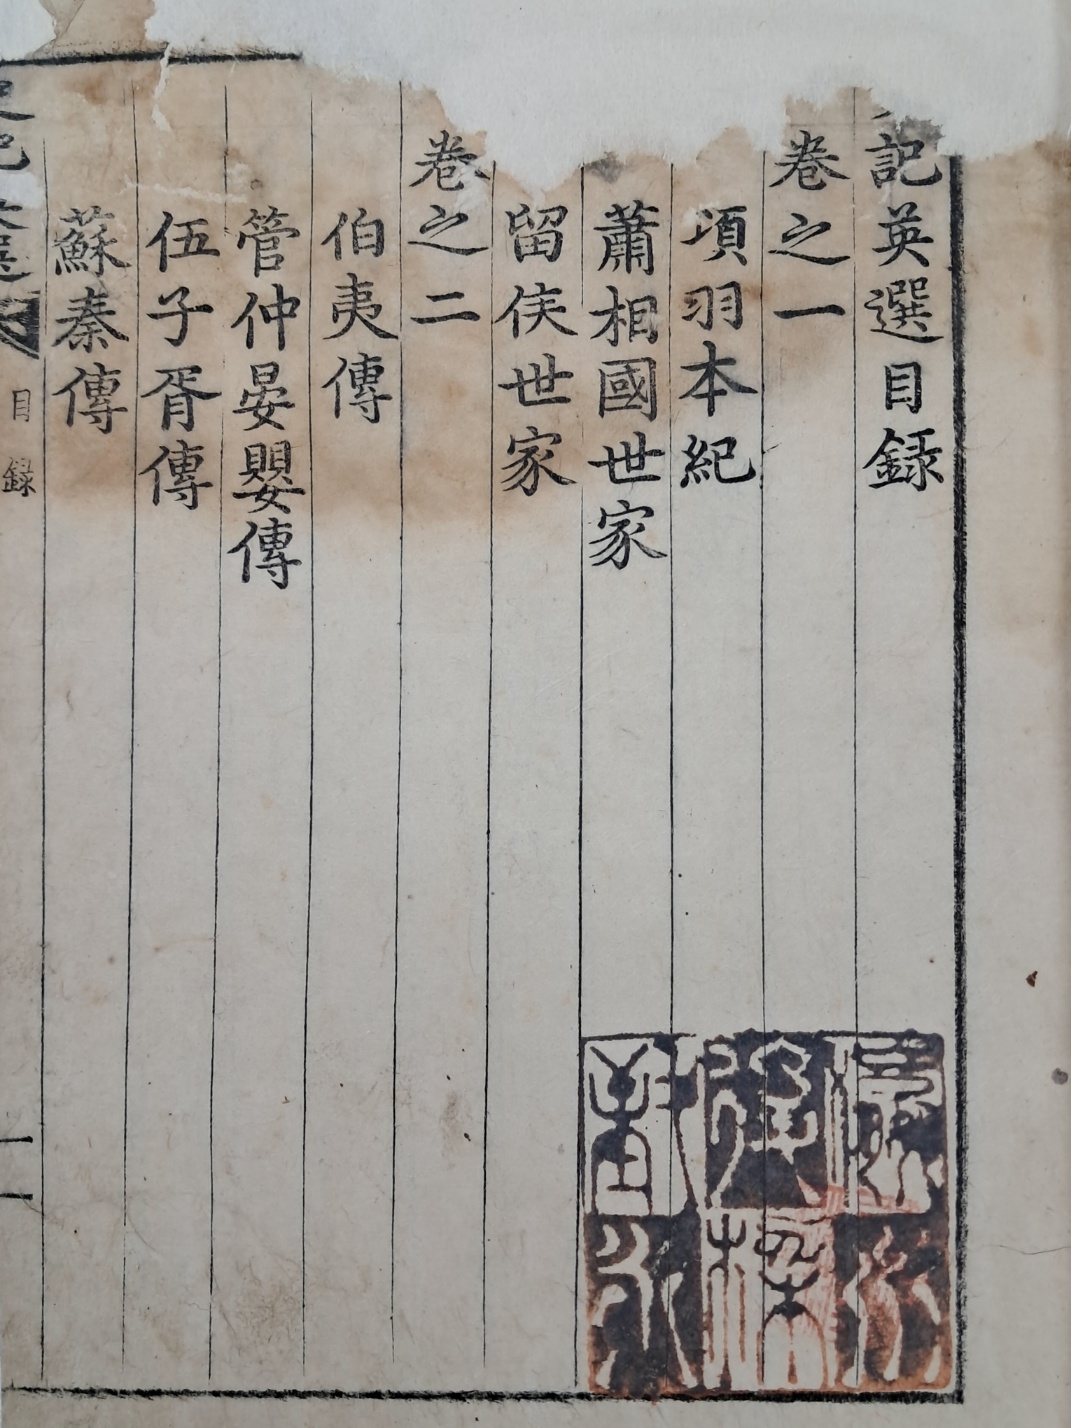 記英選目録
卷之一
項羽本紀
蕭相國世家
留侯世家
卷之二
伯夷傳
管仲晏嬰傳
伍子胥傳
蘇秦傳
目録
二